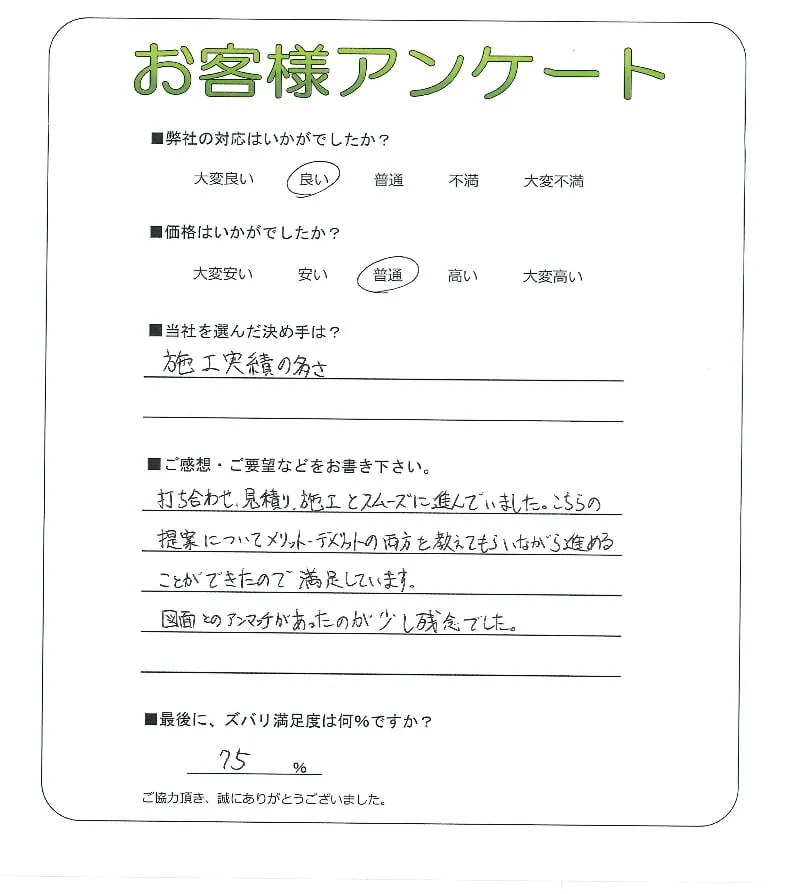 お客様アンケート
■弊社の対応はいかがでしたか？
大変良い 良い 普通 不満 大変不満
■価格はいかがでしたか？
大変安い 安い 普通 高い 大変高い
■当社を選んだ決め手は？
施工実績の多さ
■ご感想・ご要望などをお書き下さい。
打ち合わせ、見積り、施工とスムーズに進んでいました。こちらの
提案についてメリット・デメリットの両方を教えてもらいながら進める
ことができたので満足しています。
図面とのアンマッチがあったのが少し残念でした。
■最後に、ズバリ満足度は何％ですか？
75 ％
ご協力頂き、誠にありがとうございました。